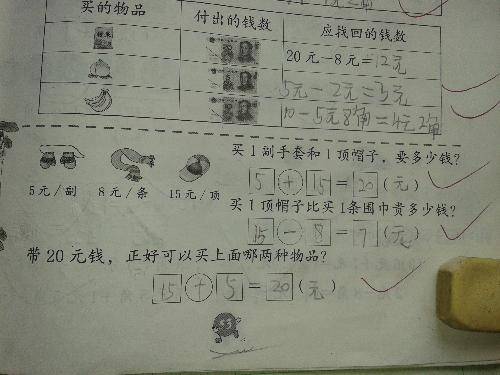 买的物品 付出的钱数 应找回的钱数
20元-8元=12元
5元-2元=3元
10-5元8角=4元2角
买1副手套和1顶帽子，要多少钱？
5元/副 8元/条 15元/顶
5+15=20(元)
买1顶帽子比买1条围巾贵多少钱？
15-8=7(元)
带20元钱，正好可以买上面哪两种物品？
15+5=20(元)